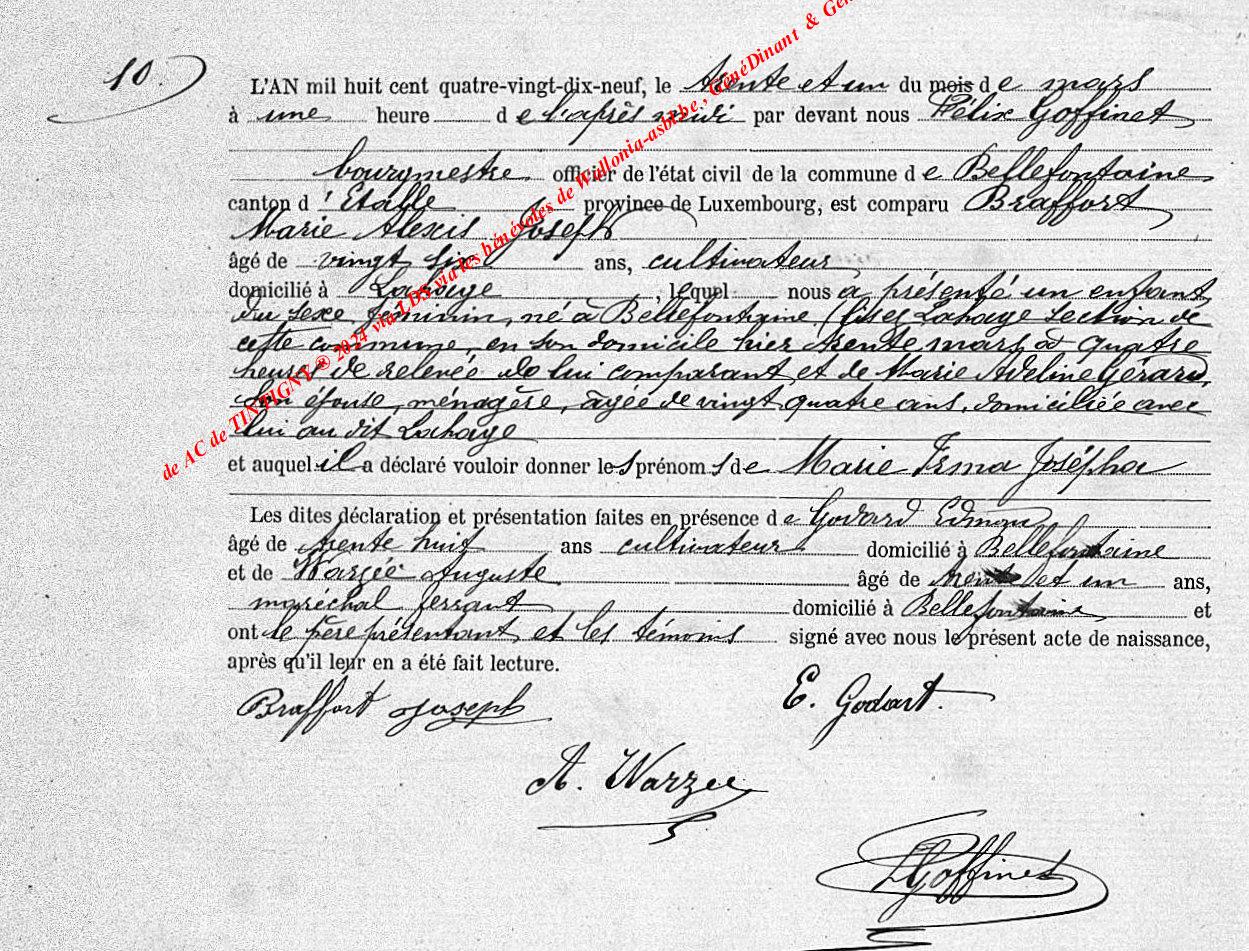 10.
L'AN mil huit cent quatre-vingt-dix-neuf, le trente et un du mois de mars
à une heure de l'après midi par devant nous Félix Goffinet
bourgmestre officier de l'état civil de la commune de Bellefontaine
canton d'Etalle province de Luxembourg, est comparu Braffort
Marie Alexis Joseph
âgé de vingt six ans, cultivateur
domicilié à Lahage, lequel nous a présenté un enfant
du sexe féminin, né à Bellefontaine (lisez Lahage section de
cette commune, en son domicile hier trente mars à quatre
heures de relevée de lui comparant et de Marie Adeline Gérard,
son épouse, ménagère, âgée de vingt quatre ans, domiciliée avec
lui au dit Lahage
et auquel il a déclaré vouloir donner les prénoms de Marie Irma Josépha
Les dites déclaration et présentation faites en présence de Godard Edmond
âgé de trente huit ans cultivateur domicilié à Bellefontaine
et de Warzée Auguste âgé de trente et un ans,
maréchal ferrant domicilié à Bellefontaine et
ont le père présentant et les témoins signé avec nous le présent acte de naissance,
après qu'il leur en a été fait lecture.
Braffort Joseph
E. Godart.
A. Warzee
Goffinet
de AC de TINTIGNY ® 2024 via LDS via les bénévoles de Wallonia-asbl.be, GénéDinant & Gén